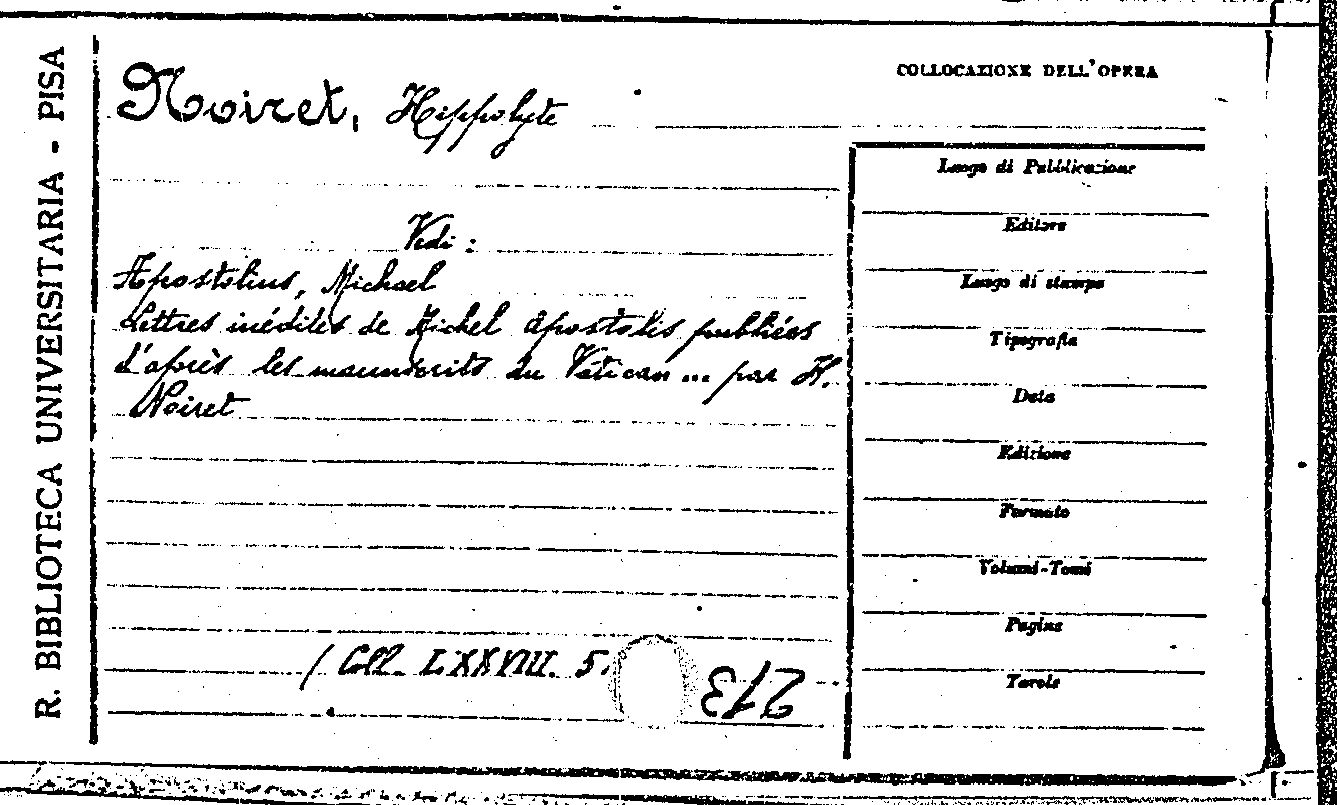 R. BIBLIOTECA UNIVERSITARIA - PISA
Noiret, Hippolyte
Vedi :
Apostolius, Michael
Lettres inédites de Michel Apostolis publiées
d'après les manuscrits du Vatican ... par H.
Noiret
( Coll. LXXVIII. 5.
213
COLLOCAZIONE DELL'OPERA
Luogo di Pubblicazione
Editore
Luogo di stampa
Tipografia
Data
Edizione
Formato
Volumi-Tomi
Pagine
Tavole